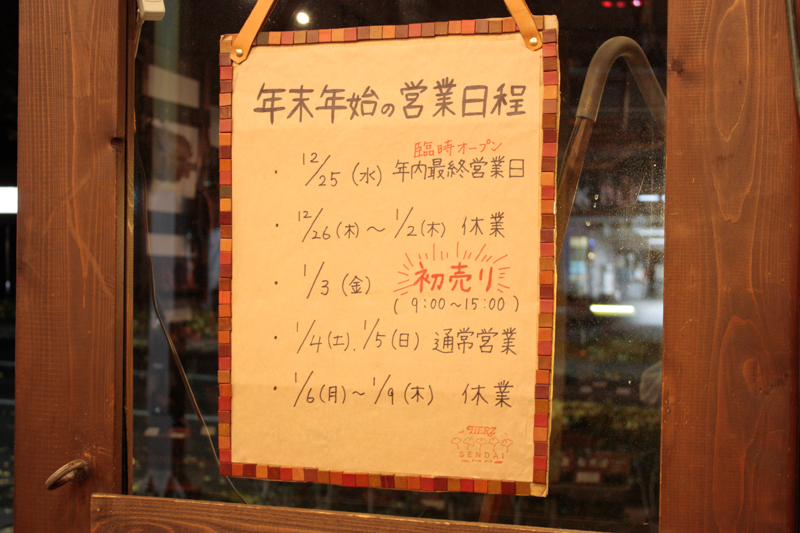 年末年始の営業日程
臨時オープン
・12/25(水) 年内最終営業日
・12/26(木)～1/2(木) 休業
・1/3(金) 初売り
(9:00～15:00)
・1/4(土).1/5(日) 通常営業
・1/6(月)～1/9(木) 休業
HERZ
SENDAI